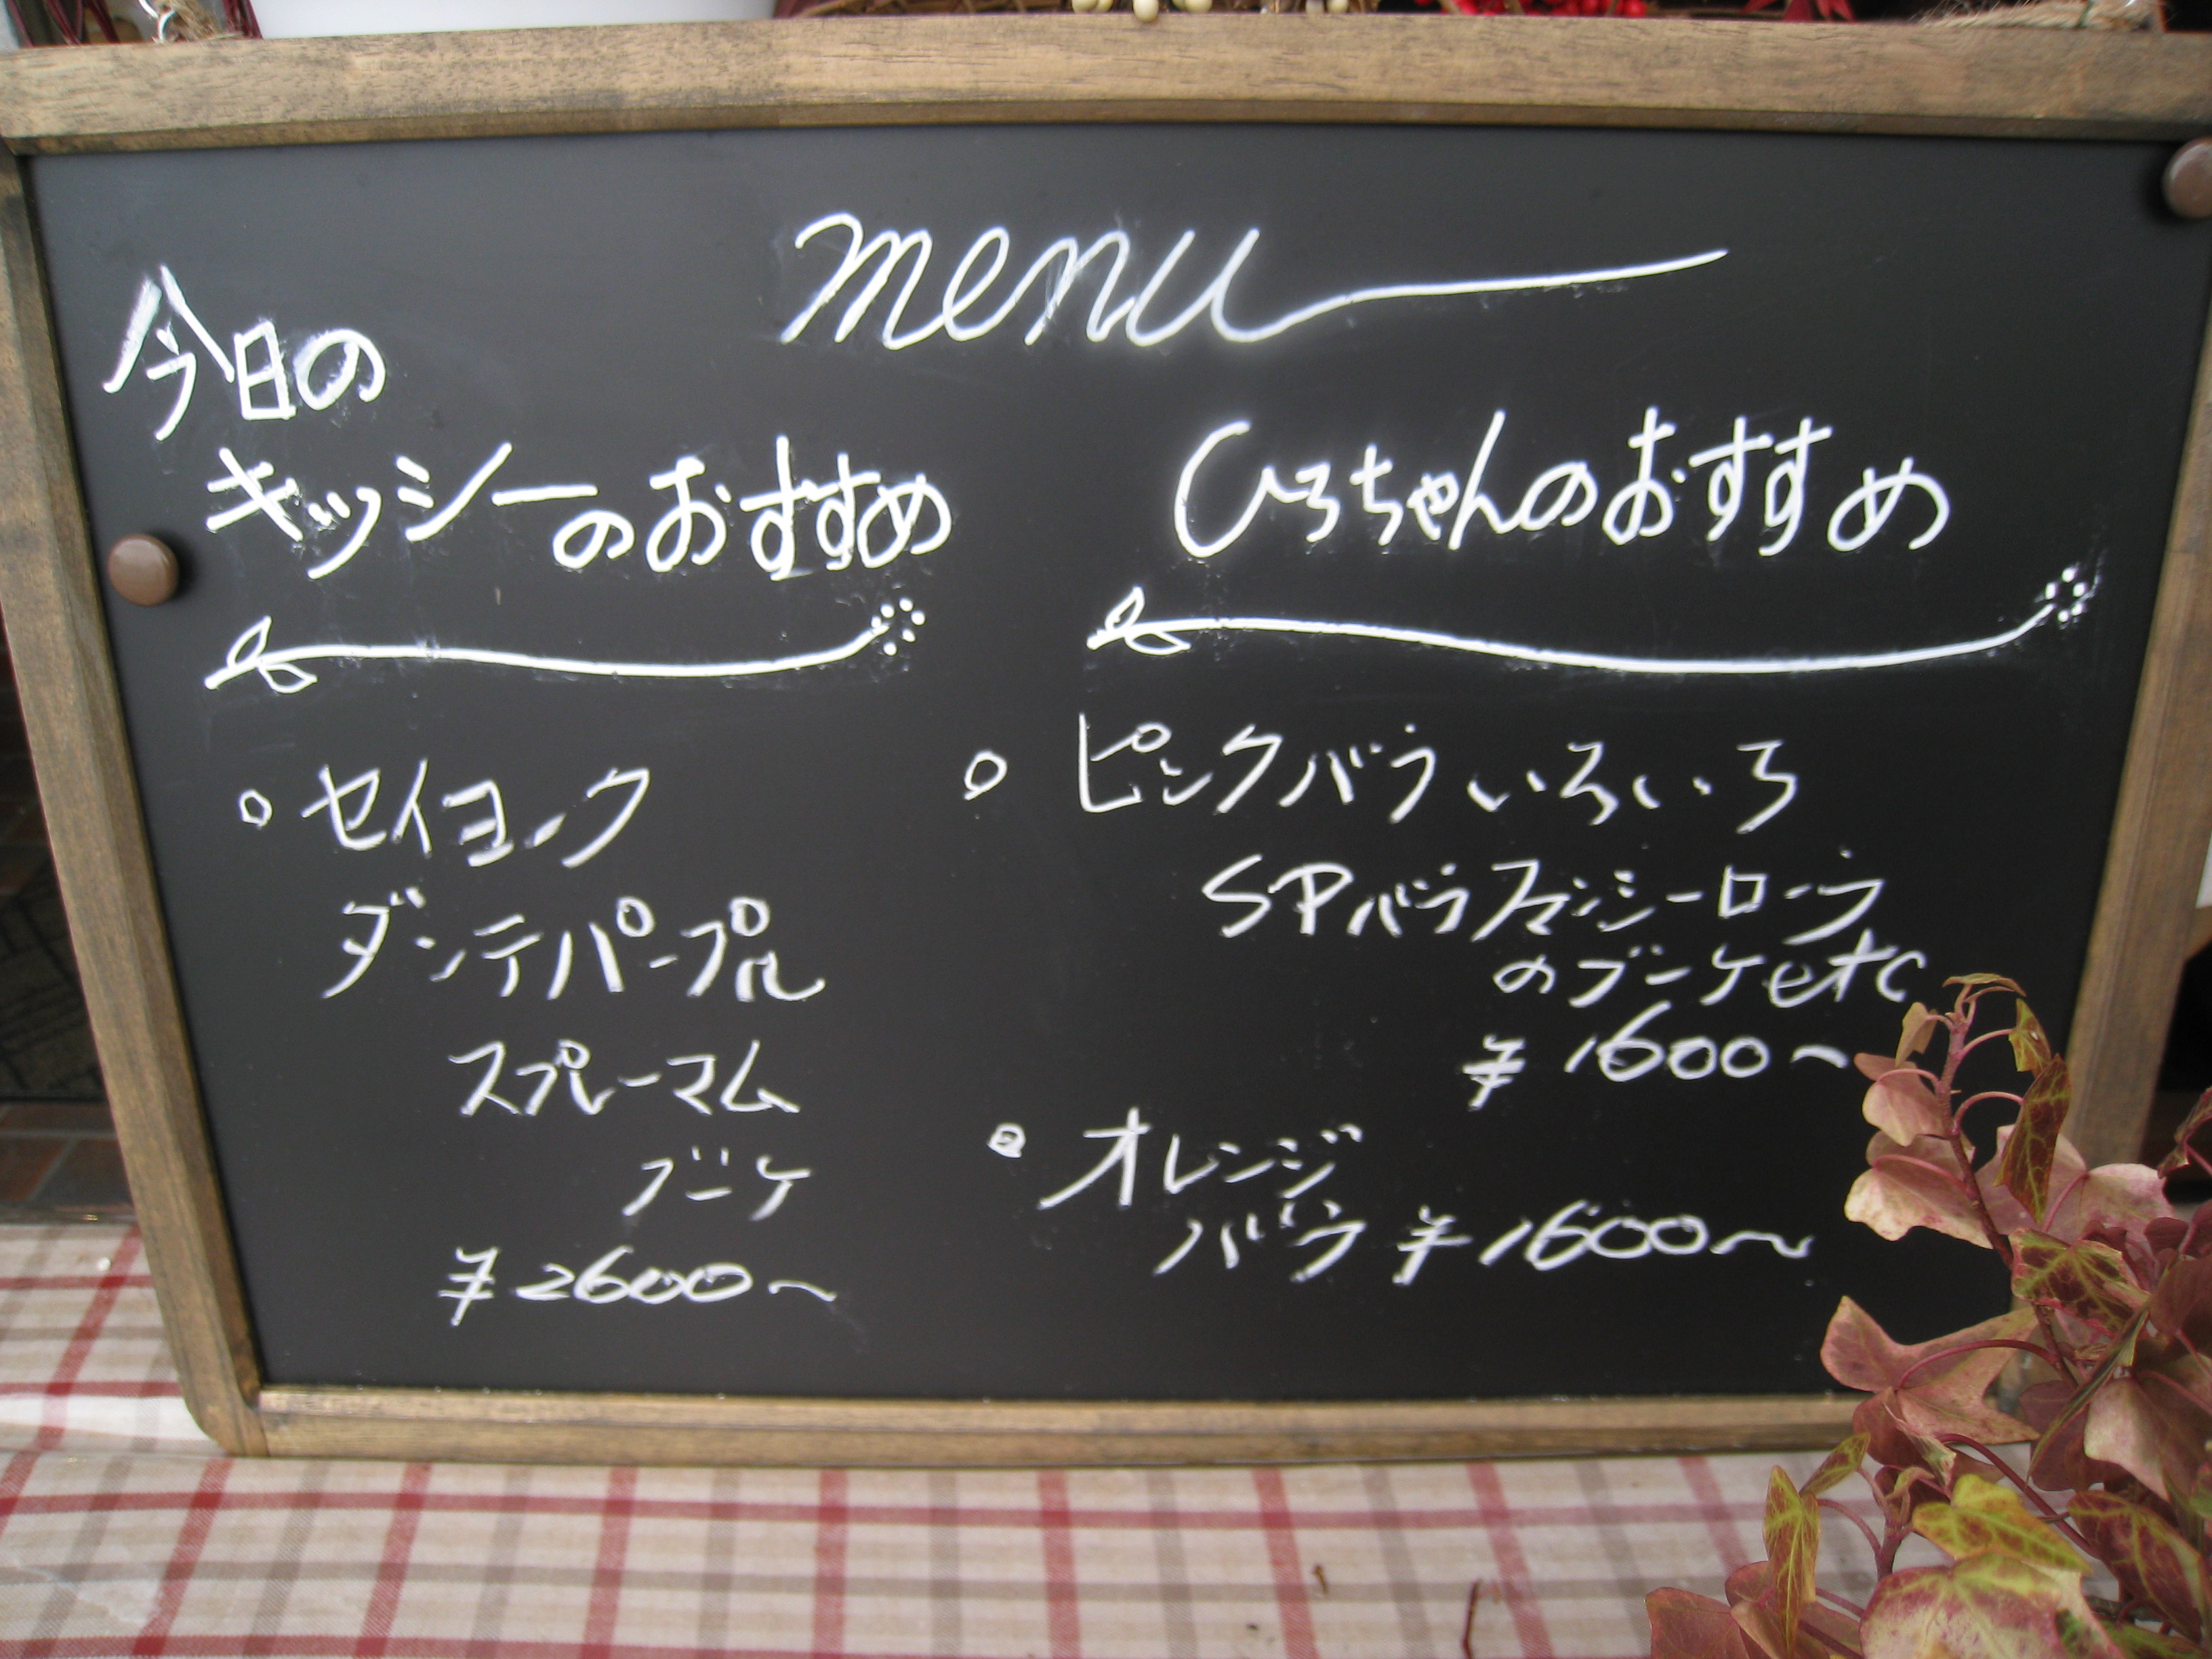 menu
今日の
キッシーのおすすめ
セイヨーク
ダンテパープル
スプレーマム
ブーケ
¥2600〜
ひろちゃんのおすすめ
ピンクバラいろいろ
SPバラファンシーローラ
のブーケetc
¥1600〜
オレンジ
バラ ¥1600〜